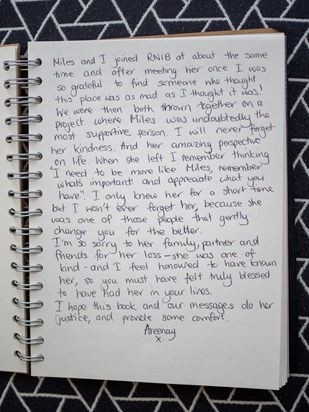 Miles and I joined RNIB at about the same
time and after meeting her once I was
so grateful to find someone who thought
this place was as mad as I thought it was!
We were then both thrown together on a
project where Miles was undoubtedly the
most supportive person. I will never forget
her kindness. And her amazing perspective
on life. When she left I remember thinking
"I need to be more like Miles, remember
whats important and appreciate what you
have". I only knew her for a short time
but I won't ever forget her, because she
was one of those people that gently
change you for the better.
I'm so sorry to her family, partner and
friends for her loss - she was one of
kind - and I feel honoured to have known
her, so you must have felt truly blessed
to have had her in your lives.
I hope this book and our messages do her
justice, and provide some comfort.
x